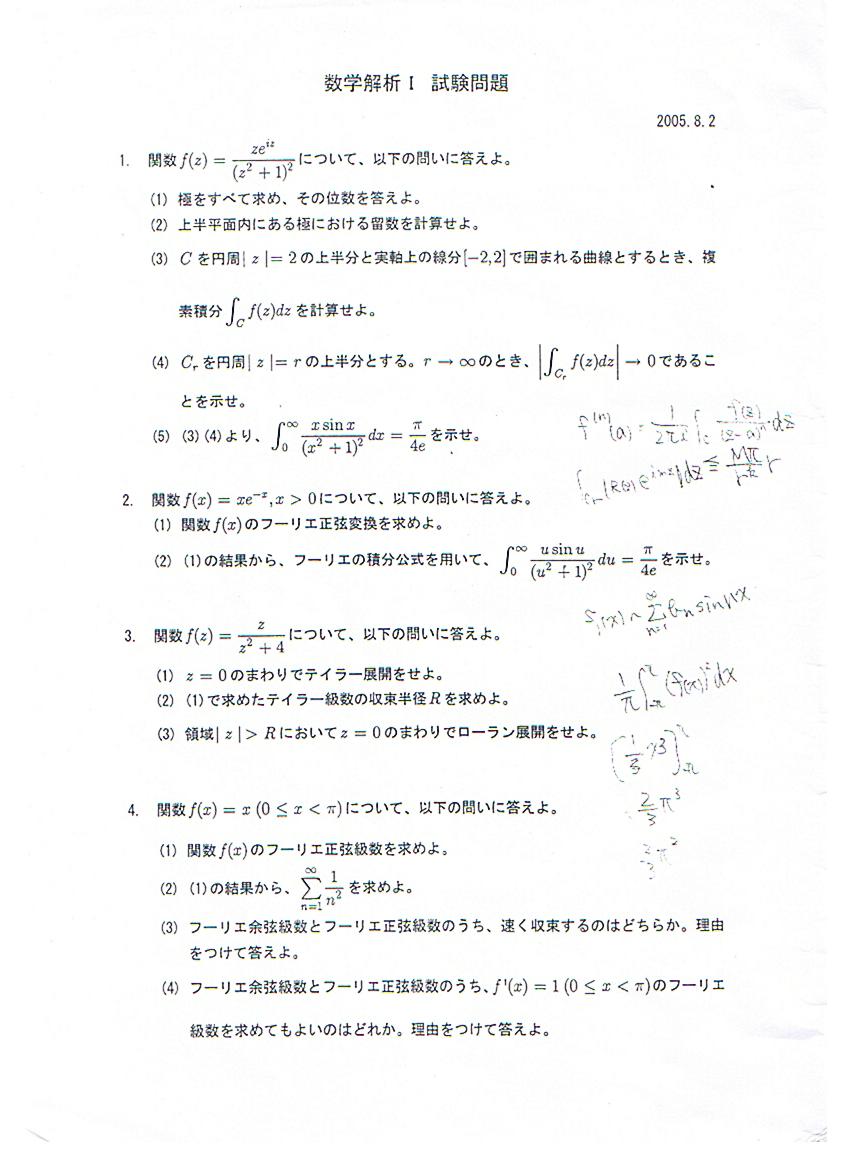 数学解析 I 試験問題
2005.8.2
1. 関数 f(z) = ze^{iz}/(z² + 1)² について、以下の問いに答えよ。
(1) 極をすべて求め、その位数を答えよ。
(2) 上半平面内にある極における留数を計算せよ。
(3) C を円周| z |= 2 の上半分と実軸上の線分[−2,2]で囲まれる曲線とするとき、複
素積分 ∫_C f(z)dz を計算せよ。
(4) C_r を円周| z |= r の上半分とする。r → ∞ のとき、|∫_{C_r} f(z)dz| → 0 であるこ
とを示せ。
(5) (3)(4)より、∫_0^∞ x sin x/(x² + 1)² dx = π/4e を示せ。
f^{(n)}(a) = 1/2πi ∫_C f(z)/(z−a)^n dz
2. 関数 f(x) = xe^{−x}, x > 0 について、以下の問いに答えよ。
(1) 関数 f(x) のフーリエ正弦変換を求めよ。
(2) (1)の結果から、フーリエの積分公式を用いて、∫_0^∞ u sin u/(u² + 1)² du = π/4e を示せ。
3. 関数 f(z) = z/(z² + 4) について、以下の問いに答えよ。
(1) z = 0 のまわりでテイラー展開をせよ。
(2) (1)で求めたテイラー級数の収束半径 R を求めよ。
(3) 領域| z |> R において z = 0 のまわりでローラン展開をせよ。
S_f(x) ~ Σ_{n=1}^∞ bn sin nx
1/π ∫_{−π}^{π} (f(x))² dx
[1/3 x3]_{−π}^{π}
2/3 π³
2/3 π²
4. 関数 f(x) = x (0 ≤ x < π) について、以下の問いに答えよ。
(1) 関数 f(x) のフーリエ正弦級数を求めよ。
(2) (1)の結果から、Σ_{n=1}^∞ 1/n² を求めよ。
(3) フーリエ余弦級数とフーリエ正弦級数のうち、速く収束するのはどちらか。理由
をつけて答えよ。
(4) フーリエ余弦級数とフーリエ正弦級数のうち、f'(x) = 1 (0 ≤ x < π)のフーリエ
級数を求めてもよいのはどれか。理由をつけて答えよ。